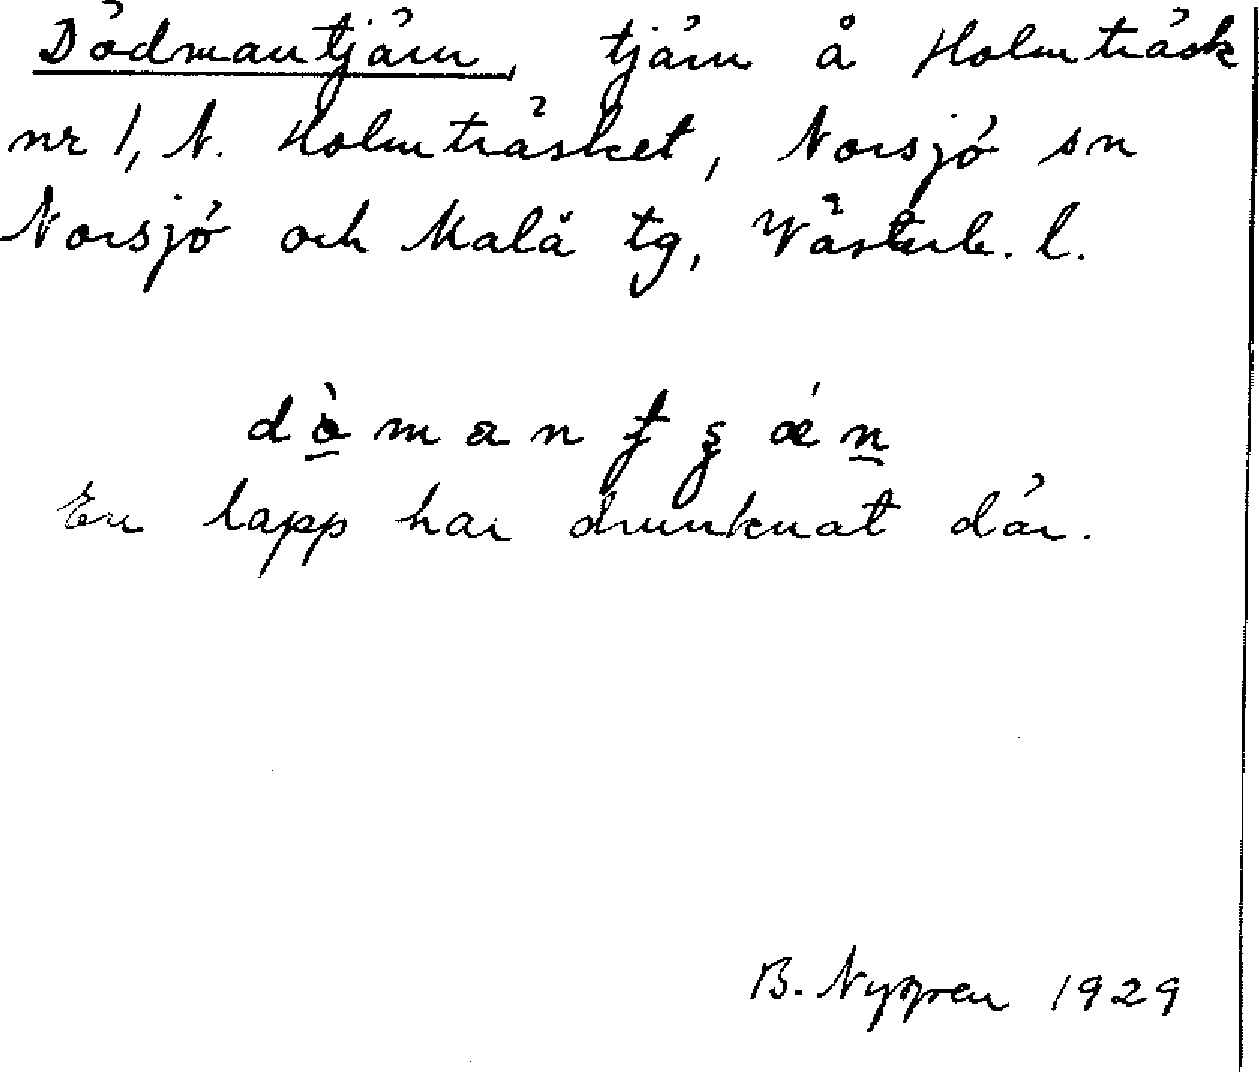 Dödmantjärn, tjärn å Holmträsk
nr 1, N. Holmträsket, Norsjö sn
Norsjö och Malå tg, Västerb. l.
En lapp har drunknat där.
B. Nygren 1929